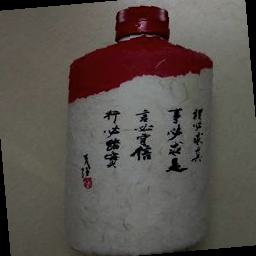 理必求真
事必求是
言必守信
行必踏实